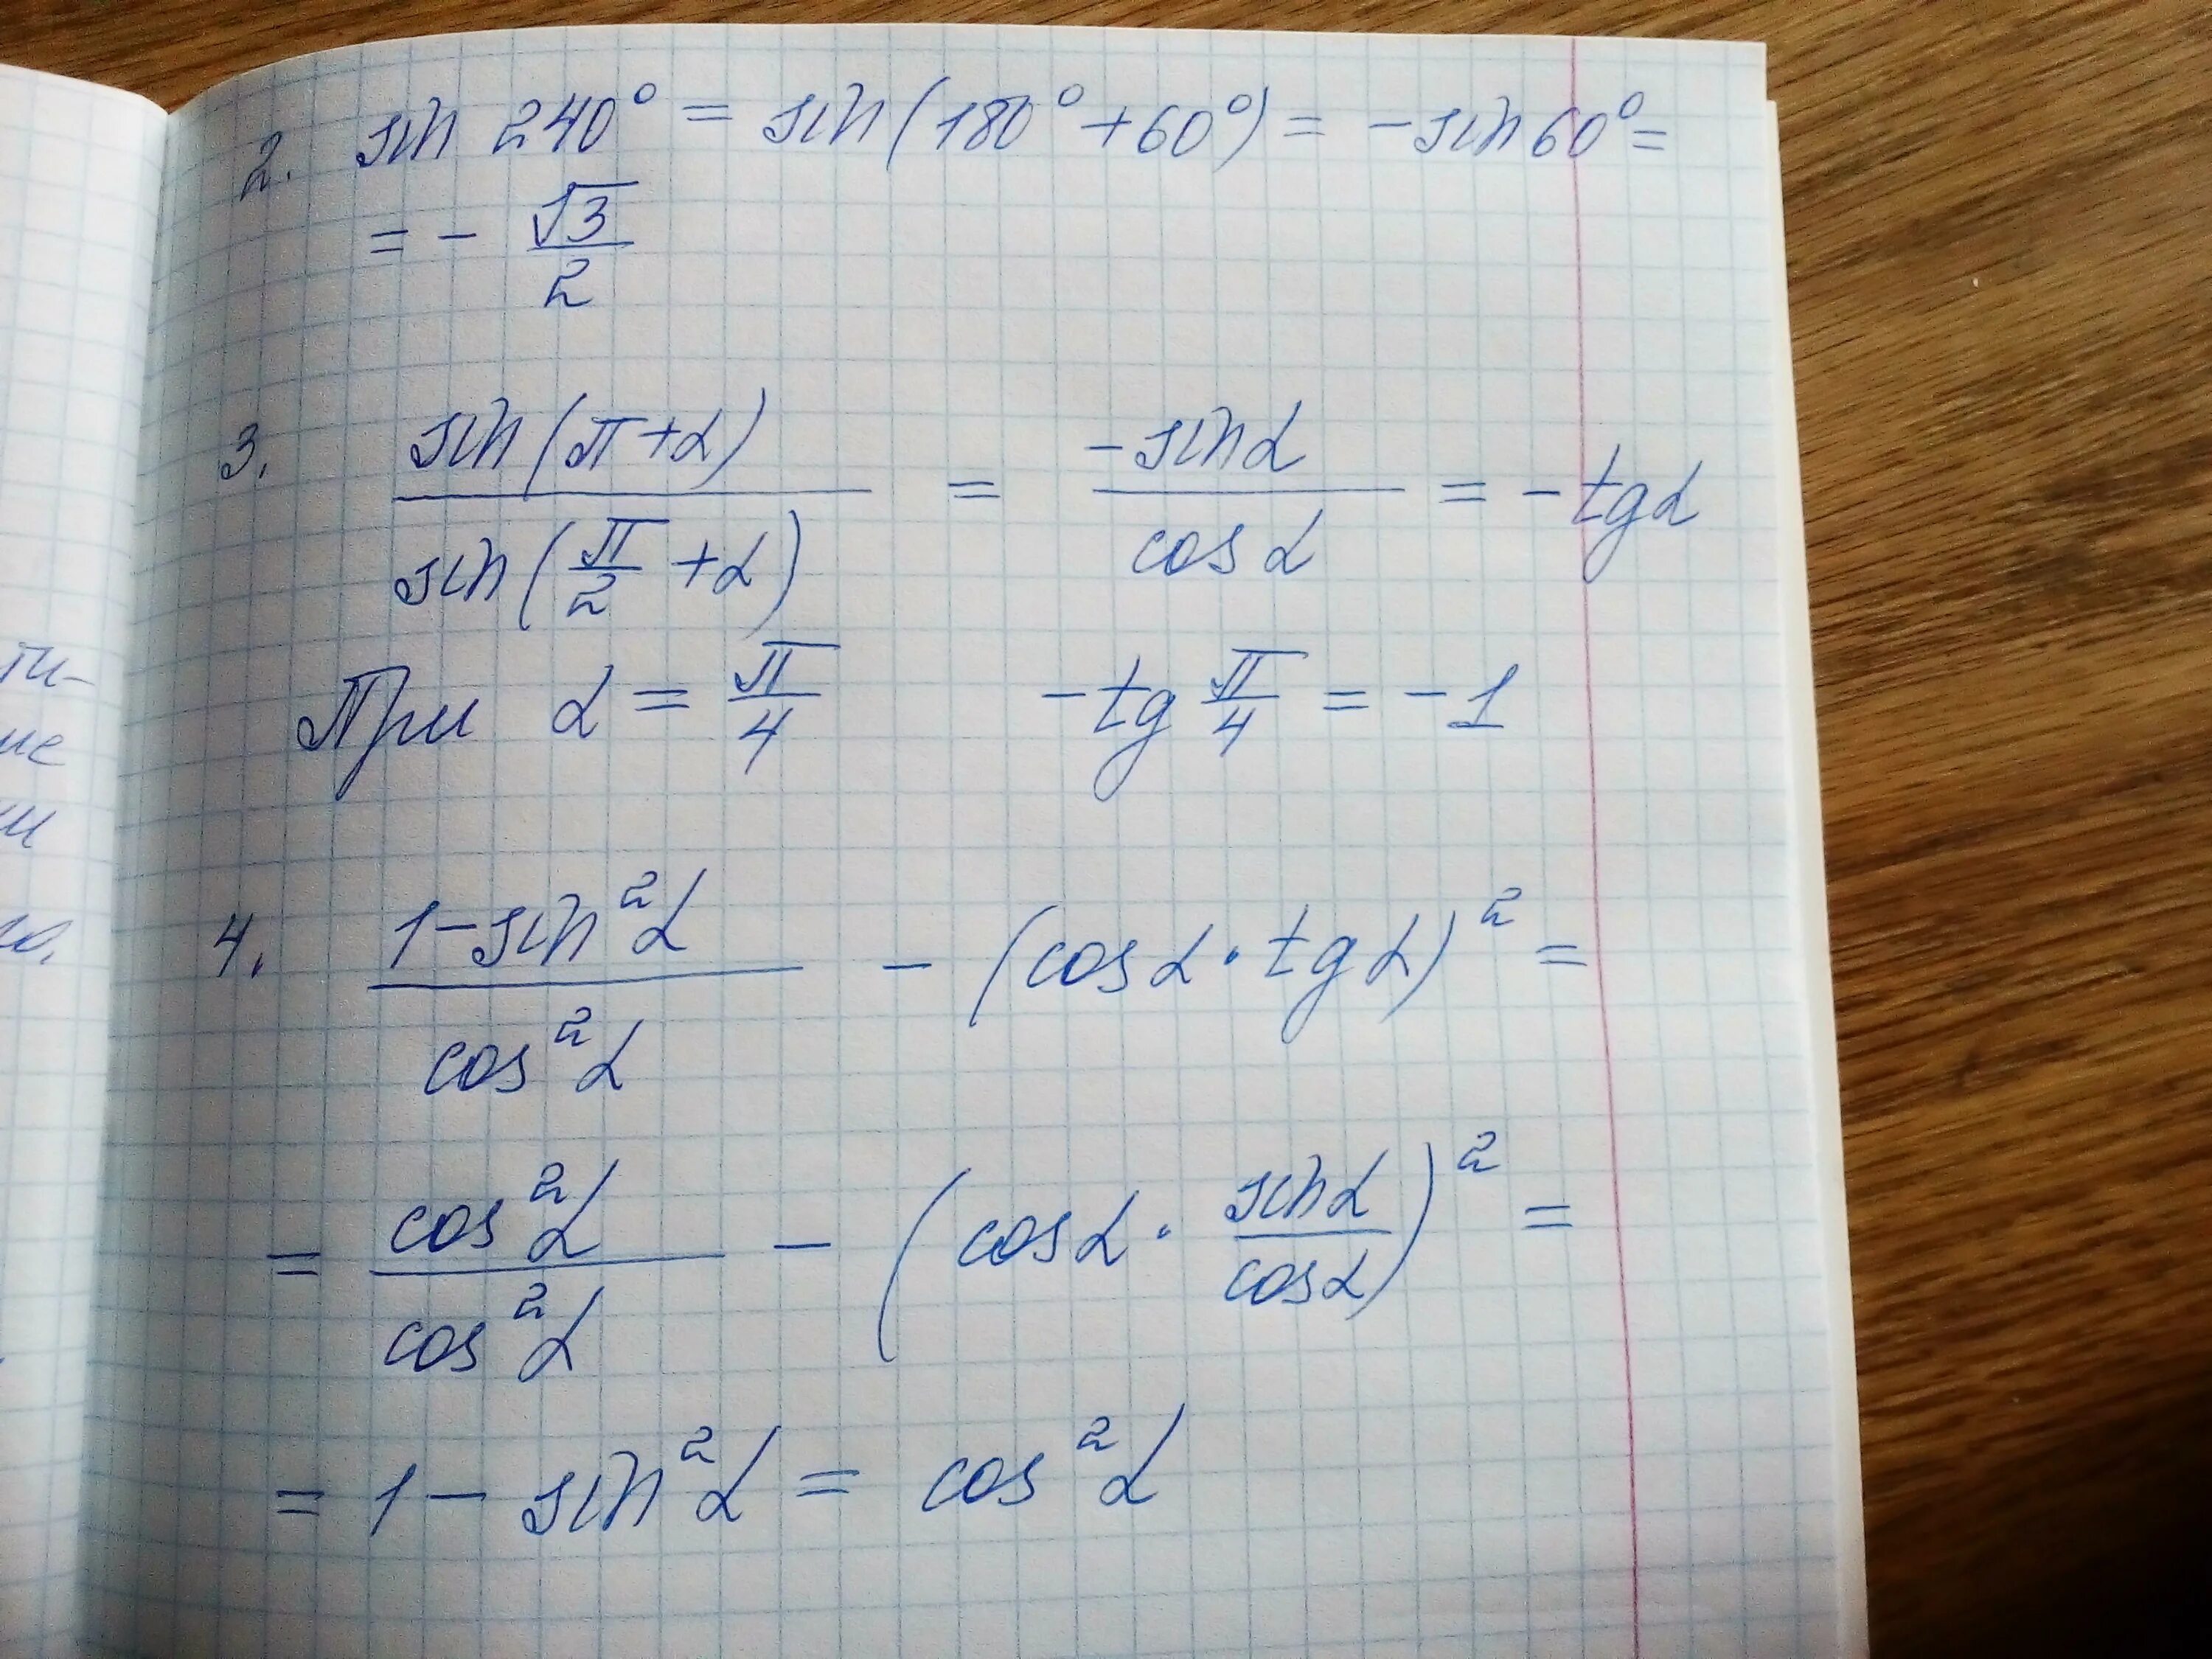 2. sin 240° = sin(180° + 60°) = -sin 60° =
= - √3/2
3. sin(π+α) / sin(π/2 + α) = -sin α / cos α = -tg α
При α = π/4 -tg π/4 = -1
4. 1-sin²α / cos²α - (cos α · tg α)² =
= cos²α / cos²α - (cos α · sin α / cos α)² =
= 1 - sin²α = cos²α